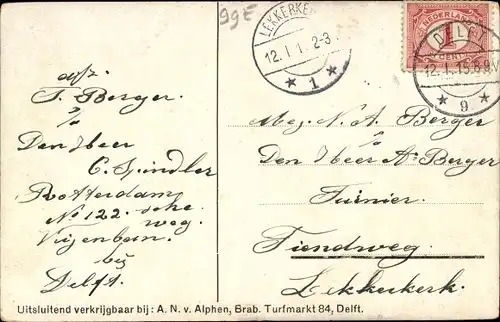 99E
LEKKERKE
12.I.1 2-3
* 1 *
NEDERLAND
1
CENT
DELFT
12.I.15.8-9V
* 9 *
afz.
T. Berger.
p/a
Den Heer
C. Spindler
Rotterdam
No 122. sche
weg.
Vijzenban.
bij
Delft.
Mej. N. A. Berger
p/a
Den Heer As Berger
Tuinier
Tiendweg.
Lekkerkerk.
Uitsluitend verkrijgbaar bij: A. N. v. Alphen, Brab. Turfmarkt 84, Delft.